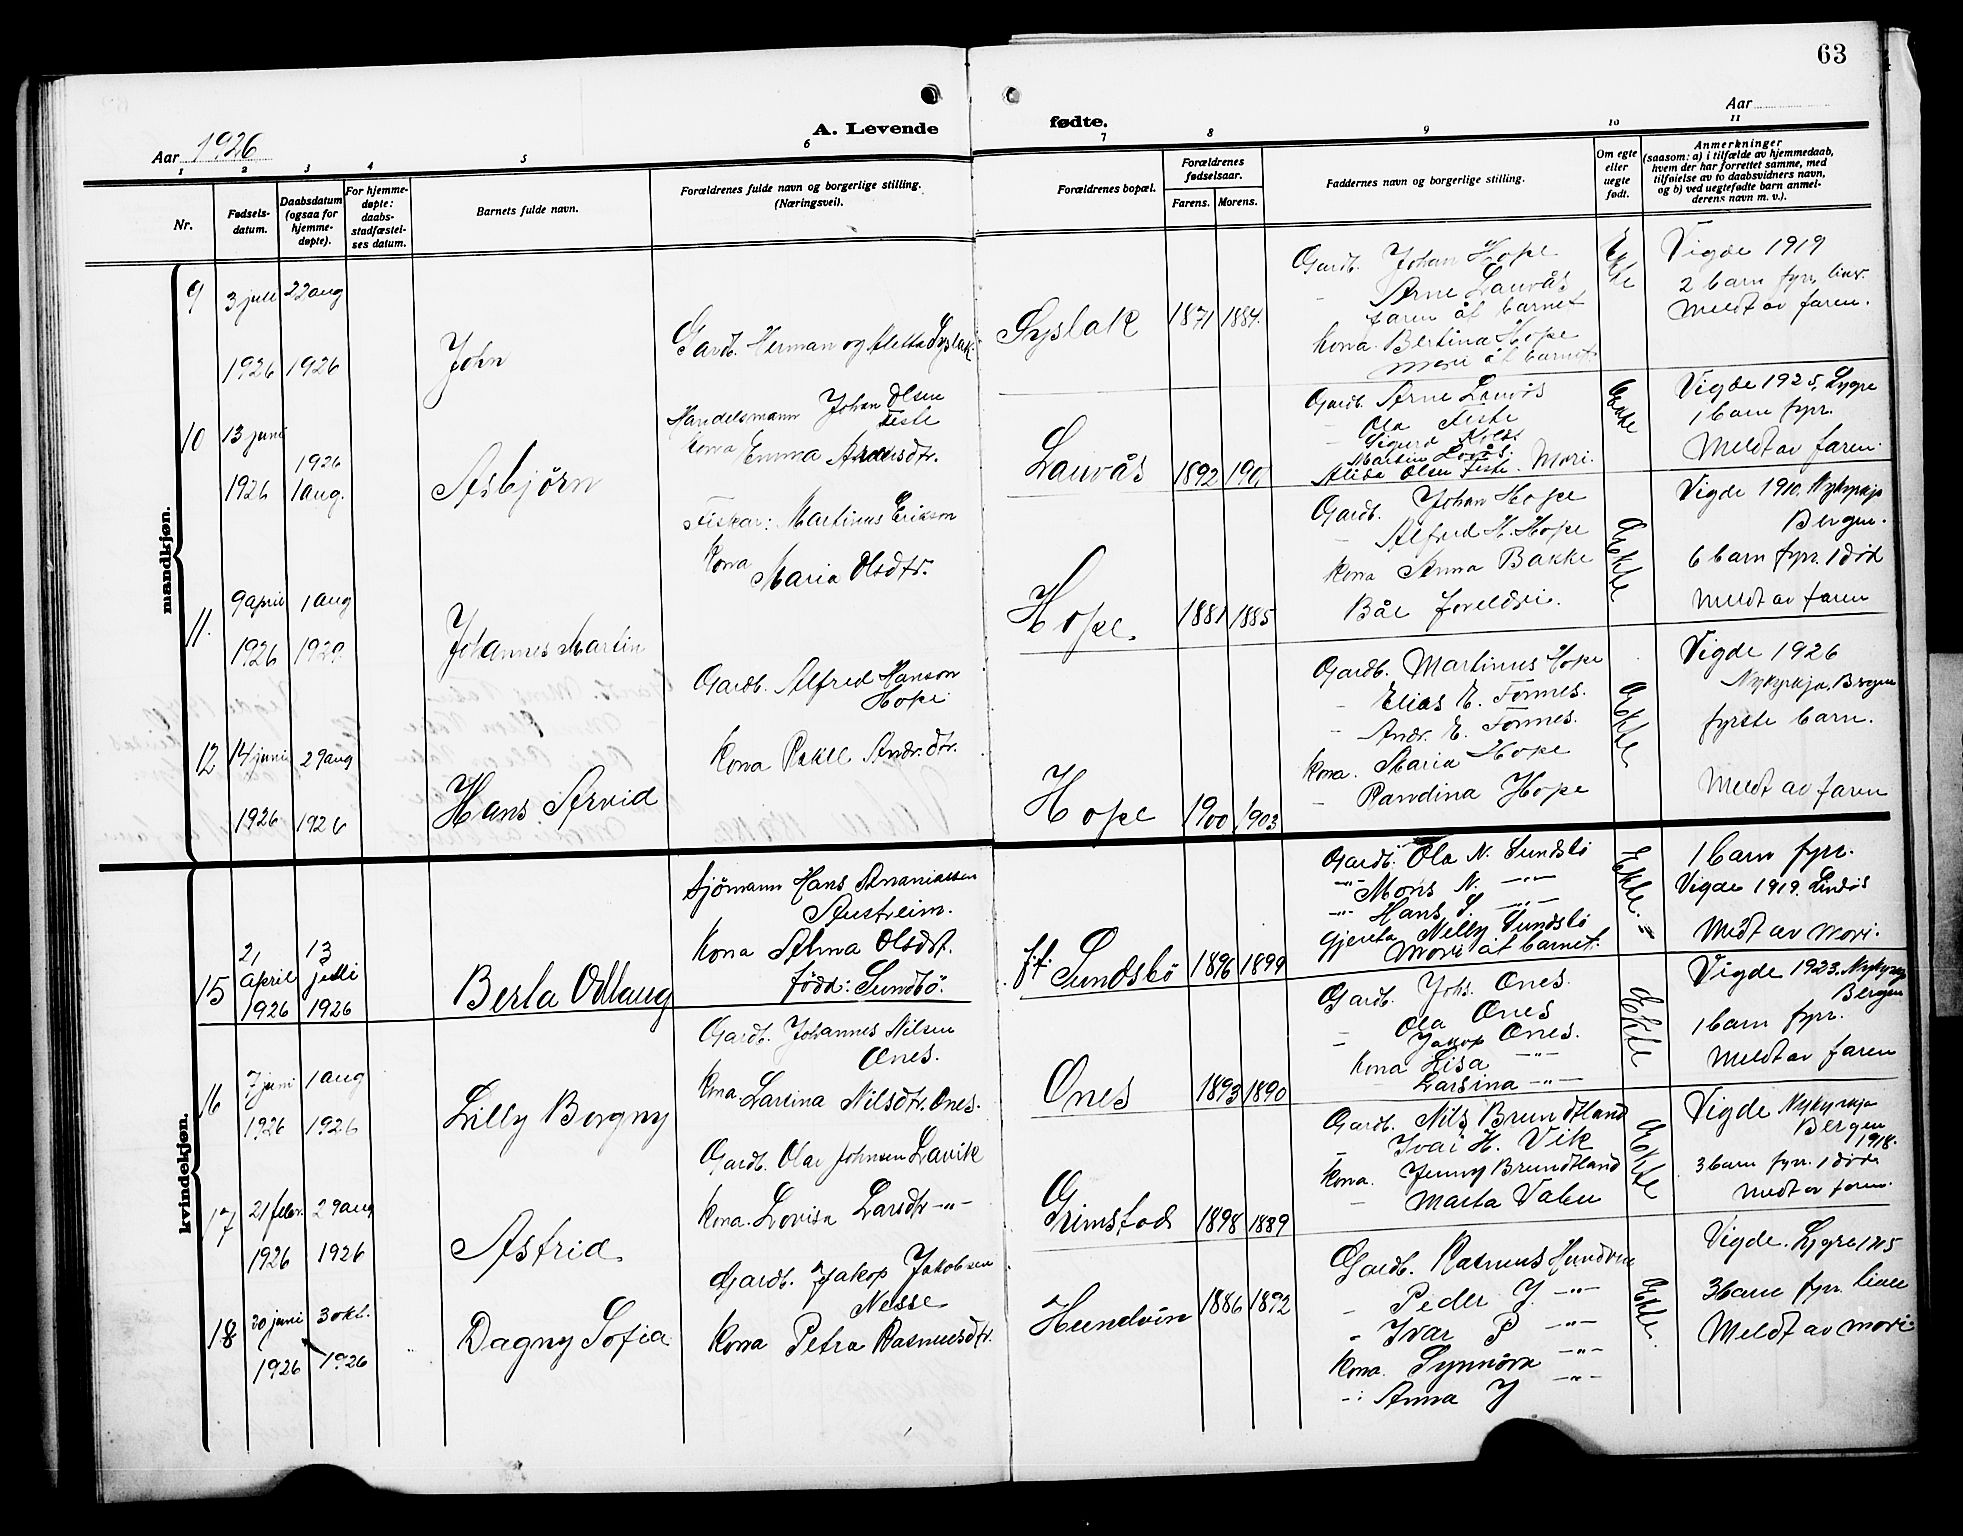 63
Aar 1926
A. Levende
fødte.
Aar
1
2
3
4
5
6
7
8
9
10
11
Nr.
Fødsels-
datum.
Daabsdatum
(ogsaa for
hjemme-
døpte).
For hjemme-
døpte:
daabs-
stadfæstel-
ses datum.
Barnets fulde navn.
Forældrenes fulde navn og borgerlige stilling.
(Næringsvei).
Forældrenes bopæl.
Forældrenes
fødselsaar.
Farens.
Morens.
Faddernes navn og borgerlige stilling.
Om egte
eller
uegte
født.
Anmerkninger
(saasom: a) i tilfælde av hjemmedaab,
hvem der har forrettet samme, med
tilføielse av to daabsvidners navn,
og b) ved uegtefødte barn anmel-
derens navn m. v.).
mandkjøn.
9
3 juli
1926
22 aug
1926
John
Gardb. Herman og Aletta Syslak
Syslak
1871
1884.
Gardb. Johan Hope
- Arne Lauvås
faren åt barnet
Kona Bertina Hope
mori åt barnet
Ekte
Vigde 1919
2 barn fyrr, liver.
Meldt av faren.
10
13 juni
1926
1926
1 aug.
Asbjørn
Handelsmann Johan Olsen
Feste
Kona Emma
Lauvås
1892
Gardb. Arne Lauvås
- Ola Feste
Martin Lovås.
Alida Olsen Feste. Mori.
Ekte
Vigde 1925. Lygre
1 barn fyrr.
Meldt av faren.
11.
9 april
1926
1 aug
1929.
Johannes Martin
Fiskar: Martinus Erikson
Kona
Maria Olsdtr.
Hope.
1881
1885
Gardb. Johan Hope
- Alfred H. Hope
Kona Anna Bakke
Båe foreldri.
Ekte
Vigde 1910. Nykyrkja
Bergen.
6 barn fyrr. 1 död
Meldt av faren
12
14 juni
1926
29 aug
1926
Hans Arvid
Gardb. Alfred Hanson
Hope
Kona Rakel Andr.dtr.
Hope
1900
1903
Gardb. Martinus Hope
- Elias E. Fonnes.
- Andr. E. Fonnes.
Kona. Maria Hope
- Randina Hope
Ekte
Vigde 1926
Nykyrkja, Bergen
fyrste barn.
Meldt av faren
kvindekjøn.
15
21
april
1926
13
juli
1926
Berla Odlaug
Sjömann Hans Ananiassen
Austreim.
Kona Alma Olsdt.
född: Sundbö.
f.t. Sundsbö
1896
1899
Gardb. Ola N. Sundsbö
-"- Mons N. -"-
-"- Hans S. -"-
Gjenta Nelly Sundsbö
Mori åt barnet.
Ekte.
1 barn fyrr.
Vigde 1919. Lindås
Meldt av mori.
16
7 juni
1926
1 aug
1926
Lilly Borgny
Gardb. Johannes Nilsen
Ones.
Kona. Larsina Nilsdtr. Ones.
Ones
1893
1890
Gardb. Johs. Ones.
- Ola Ones
- Jakop Ones.
Kona Lisa -"-
Larsina -"-
Ekte
Vigde 1923. Nykyrkja
Bergen
1 barn fyrr.
Meldt av faren
17
21 febr.
1926
29 aug
1926
Astrid
Gardb. Olai Johnsen Lavik
Kona. Lovisa Larsdtr -"-
Grimstad
1898
1889
Gardb. Nils Brundtland
- Ivar H. Vik
Kona. Jenny Brundtland
- Marta Valen
Ekte
Vigde Nykyrkja
Bergen
1918.
3 barn fyrr. 1 död
Meldt av faren.
18
20 juni
1926
3 okt.
1926
Dagny Sofia
Gardb. Jakop Jakobsen
Nesse
Kona Petra Rasmusdtr.
Hundvin
1886
1892
Gardb. Rasmus Hundvin
- Peder J. -"-
- Ivar P -"-
Kona. Synnöva -"-
-: Anna J -"-
Ekte.
Vigde. Lygre
3 barn fyrr. live
Meldt av mori